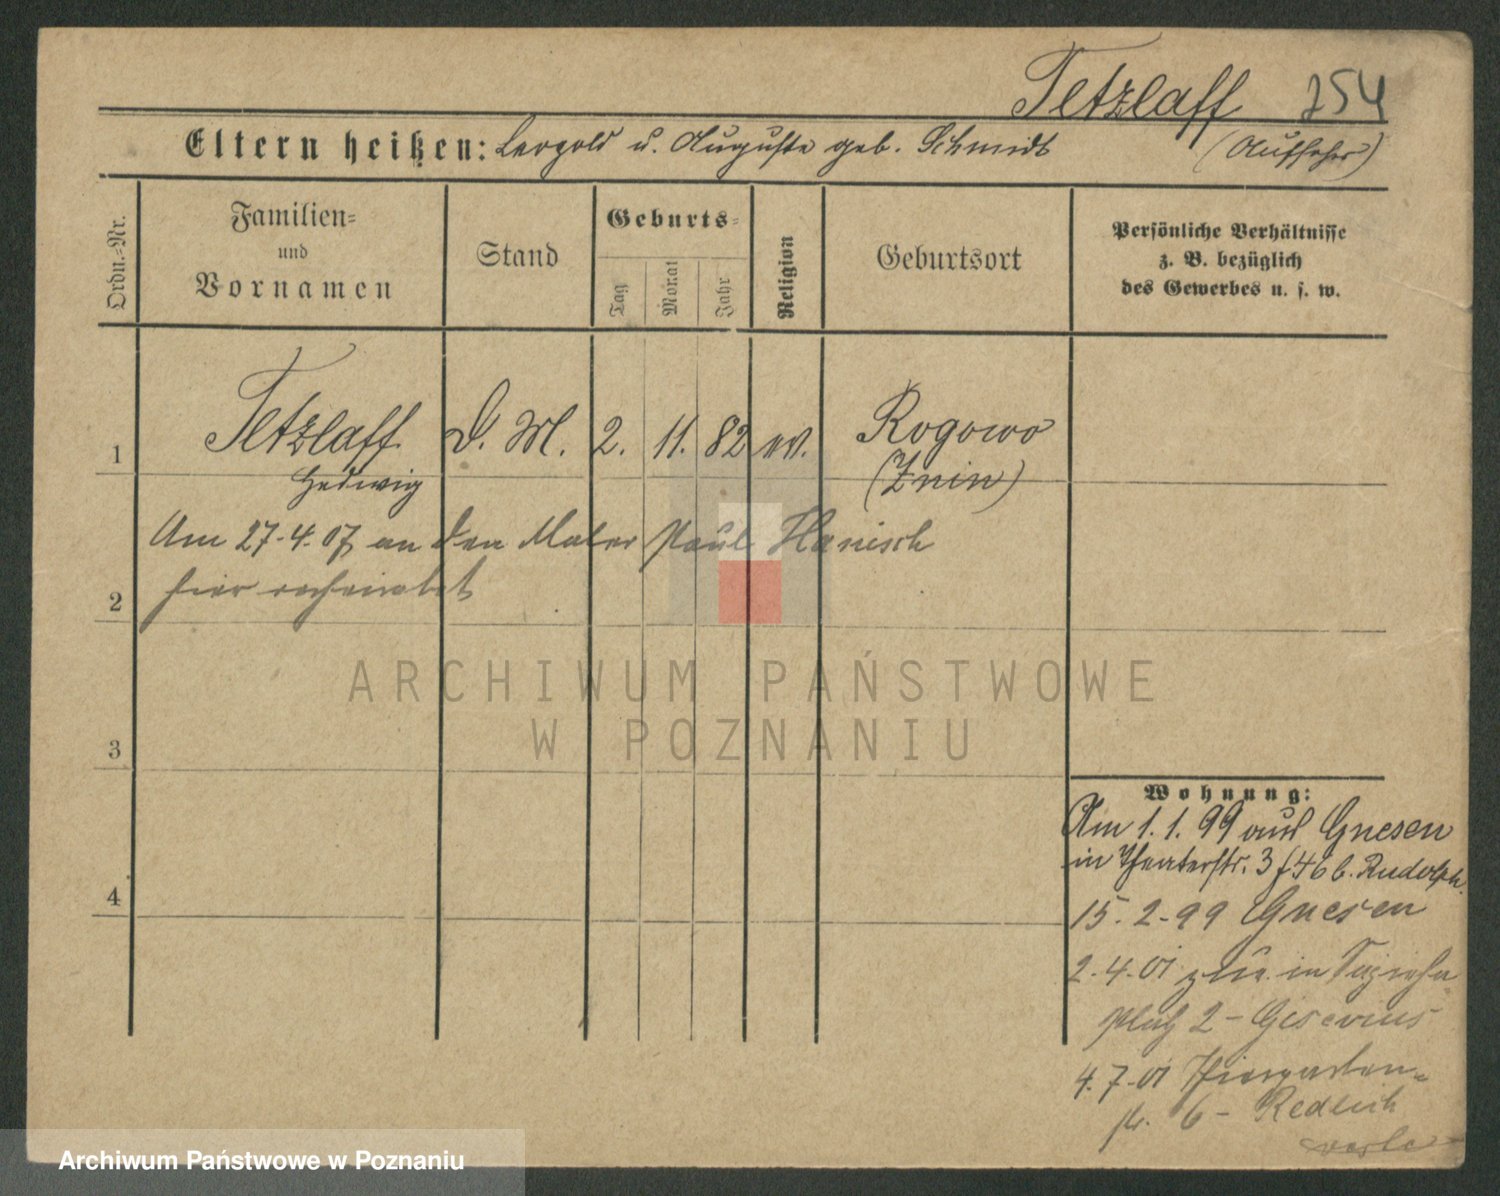 Tetzlaff 254
Eltern heißen: Leopold u. Auguste geb. Schmidt
Ordn.-Nr.
Familien- und Vornamen
Stand
Geburts-
Tag
Monat
Jahr
Religion
Geburtsort
Persönliche Verhältnisse
z. B. bezüglich
des Gewerbes u. s. w.
1 Tetzlaff D. M. 2. 11. 82 ev. Rogowo
Hedwig (Znin)
Am 27.4.07 an den Maler Paul Hanisch
2 hier verheiratet
3
4
Wohnung:
Am 1. 1. 99 aus Gnesen
in Theaterstr. 3 b. Rudolph.
15.2-99 Gnesen
2.4.01 zur. in
platz 2 - Gisevius
4.7.01 Thiergarten-
str. 6 - Redlich
ARCHIWUM PAŃSTWOWE
W POZNANIU
Archiwum Państwowe w Poznaniu